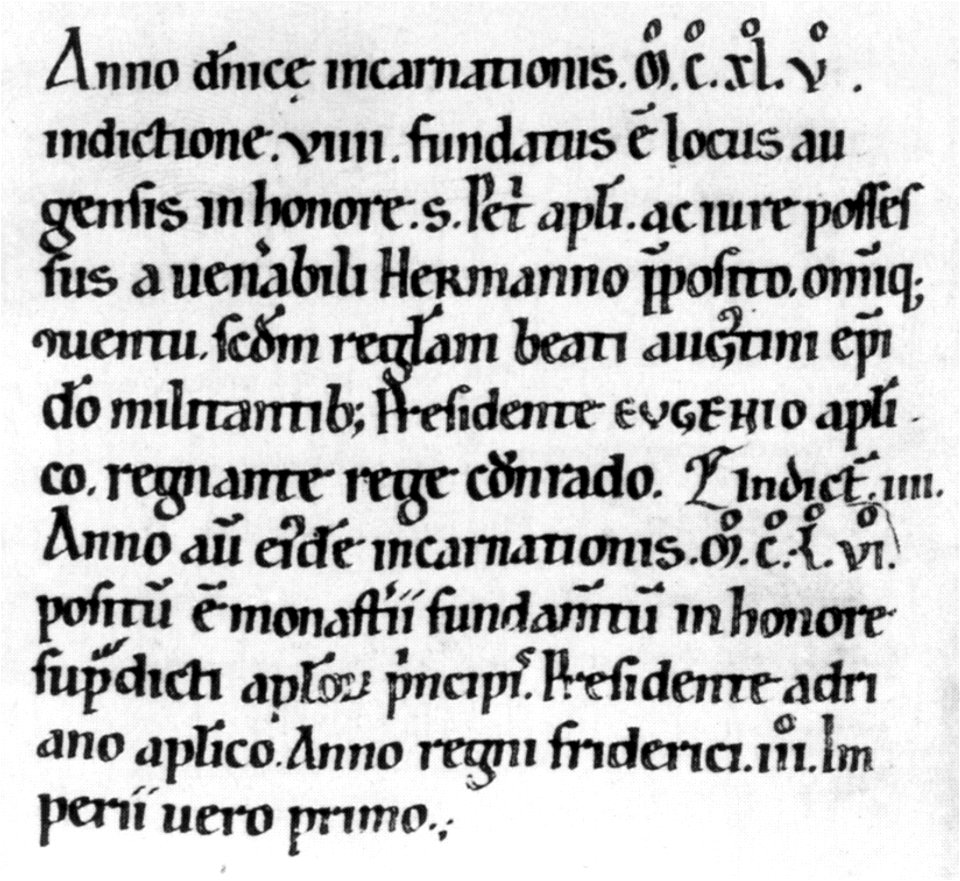 Anno dn̄icę incarnationis. M̊. C̊. xL̊. v̊ .
indictione. viiii. fundatus ē locus au
gensis in honore. s. Petͥ apl̄i. ac iure posses
sus a uen̾abili Hermanno p̄posito. om̄iq;
ꝯuentu. scd̄m regl̄am beati aug᷒tini ep̄i
dō militantib; Presidente EVGENIO apl̄i
co. regnante rege cōnrado. Indict̄. iiii.
Anno aū eiꝰdē incarnationis. M̊. C̊. L̊. vi̊.
positū ē monast̾ii fundam̄tū in honore
sup̾dicti apl̄oꝝ pͥncipiˢ. Presidente adri
ano apl̄ico. Anno regni friderici. iiii̊. Im
perii uero primo.,